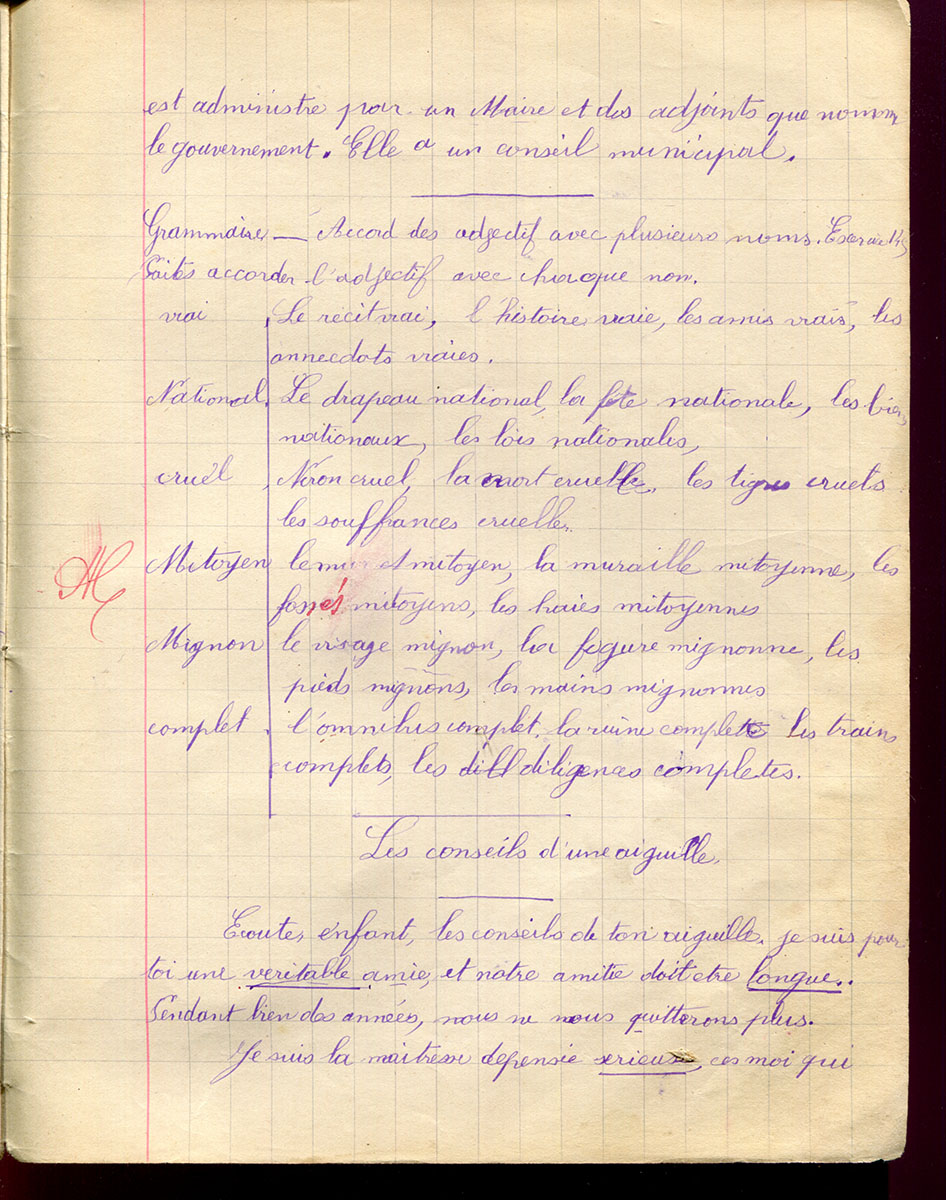 est administre par un Maire et des adjoints que nomme
le gouvernement. Elle a un conseil municipal.
Grammaire — Accord des adjectif avec plusieurs noms.
Faites accorder l'adjectif avec chaque nom.
vrai Le récit vrai, l'histoire vraie, les amis vrais, les
annecdots vraies.
National. Le drapeau national, la fete nationale, les
nationaux, les lois nationales,
cruel Néron cruel, la mort cruelle, les tigres cruels
les souffrances cruelles.
Mitoyen le mitoyen, la muraille mitoyenne, les
fossés mitoyens, les haies mitoyennes
Mignon le visage mignon, la figure mignonne, les
pieds mignons, les mains mignonnes
complet l'omnibus complet, la ruine complete les trains
complets, les diligences completes.
Les conseils d'une aiguille.
Ecoute, enfant, les conseils de ton aiguille. je suis pour
toi une veritable amie, et notre amitie doit etre longue..
Pendant bien des années, nous ne nous quitterons plus.
Je suis la maitresse depensie serieuse, ces moi qui